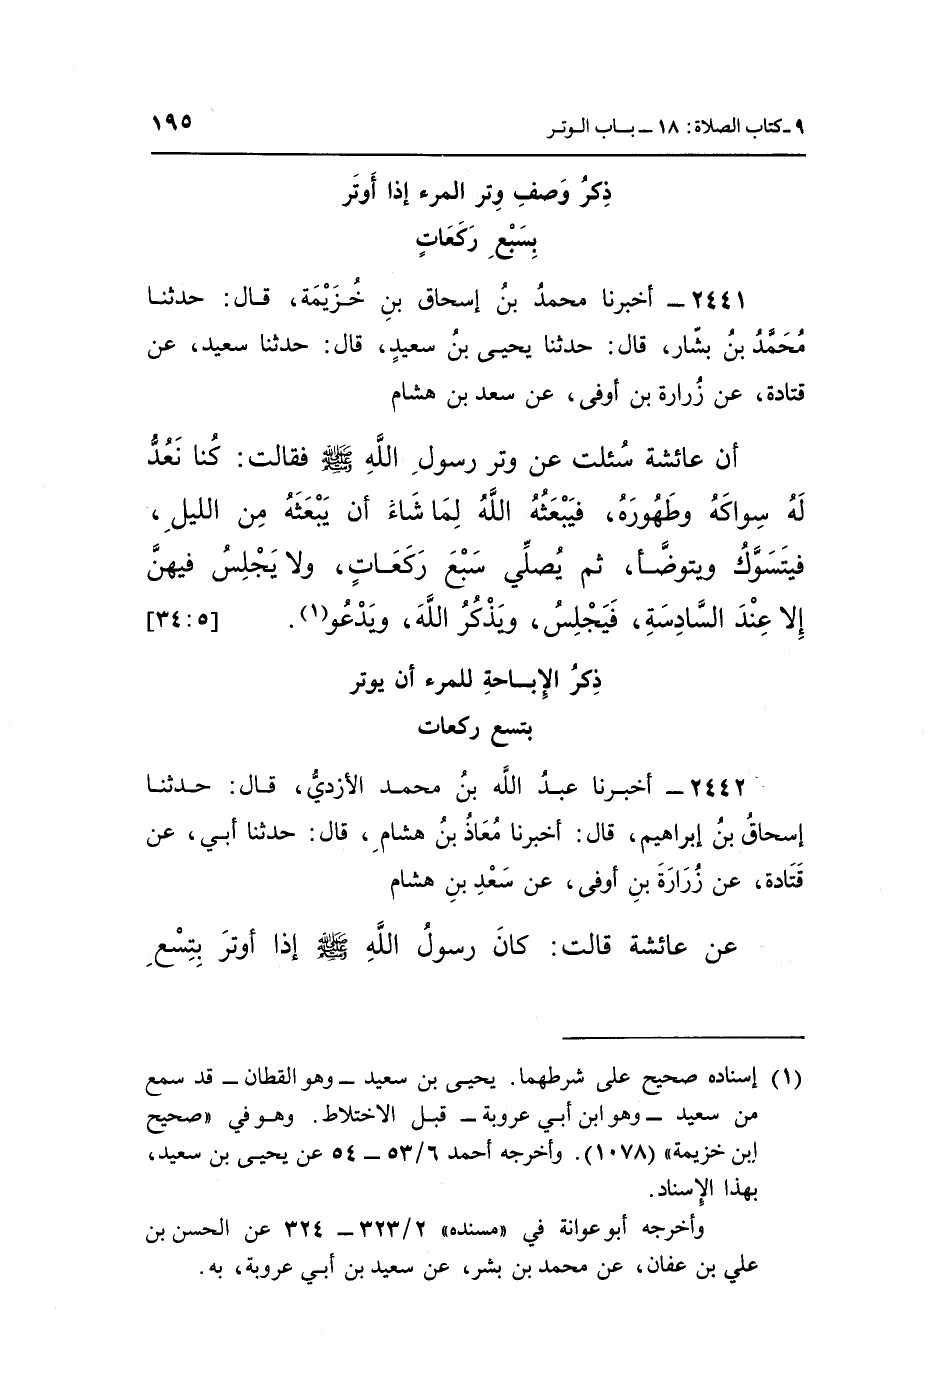 ٩ـ كتاب الصلاة: ١٨ ـ بـاب الـوتـر ١٩٥
ذِكرُ وَصفِ وِتر المرء إذا أَوتَر
بِسَبْعِ رَكَعَاتٍ
٢٤٤١ ـ أخبرنا محمدُ بنُ إسحاق بنِ خُـزَيْمَة، قـال: حدثنـا
مُحَمَّدُ بنُ بشّار، قال: حدثنا يحيـى بنُ سعيدٍ، قال: حدثنا سعيد، عن
قتادة، عن زُرارة بن أوفى، عن سعد بن هشام
أن عائشة سُئلت عن وتر رسولِ اللَّهِ ﷺ فقالت: كُنا نَعُدُّ
لَهُ سِواكَهُ وطَهُورَهُ، فيَبْعَثُهُ اللَّهُ لِمَا شَاءَ أن يَبْعَثَهُ مِن الليلِ،
فيتَسَوَّكُ ويتوضَّـأ، ثم يُصلِّي سَبْعَ رَكَعَـاتٍ، ولا يَجْلِسُ فيهنَّ
إلا عِنْدَ السَّادِسَةِ، فَيَجْلِسُ، ويَذْكُرُ اللَّهَ، ويَدْعُو(١). [٥:٣٤]
ذِكرُ الإِبـاحةِ للمرء أن يوتر
بتسع ركعات
٢٤٤٢ ـ أخبـرنا عبـدُ اللَّه بنُ محمـد الأزديُّ، قـال: حـدثنـا
إسحاقُ بنُ إبراهيم، قال: أخبرنا مُعَاذُ بنُ هشامٍ، قال: حدثنا أبـي، عن
قَتَادة، عن زُرَارَةَ بنِ أوفى، عن سَعْدِ بنِ هشام
عن عائشة قالت: كانَ رسولُ اللَّهِ ﷺ إذا أوترَ بِتِسْعِ
(١) إسناده صحيح على شرطهما. يحيـى بن سعيد ـ وهو القطان ـ قد سمع
من سعيد ـ وهو ابن أبـي عروبة ـ قبل الاختلاط. وهـو في «صحيح
ابن خزيمة» (١٠٧٨). وأخرجه أحمد ٥٣/٦ ـ ٥٤ عن يحيـى بن سعيد،
بهذا الإِسناد.
وأخرجه أبو عوانة في «مسنده» ٣٢٣/٢ ـ ٣٢٤ عن الحسن بن
علي بن عفان، عن محمد بن بشر، عن سعيد بن أبـي عروبة، به.